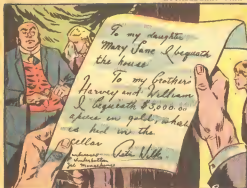 To my daughter
Mary Jane I bequeath
the house
To my Brothers
Harvey and William
I bequeath $3,000.00
apiece in gold, what
is hid in the
cellar
Pete Wilk.